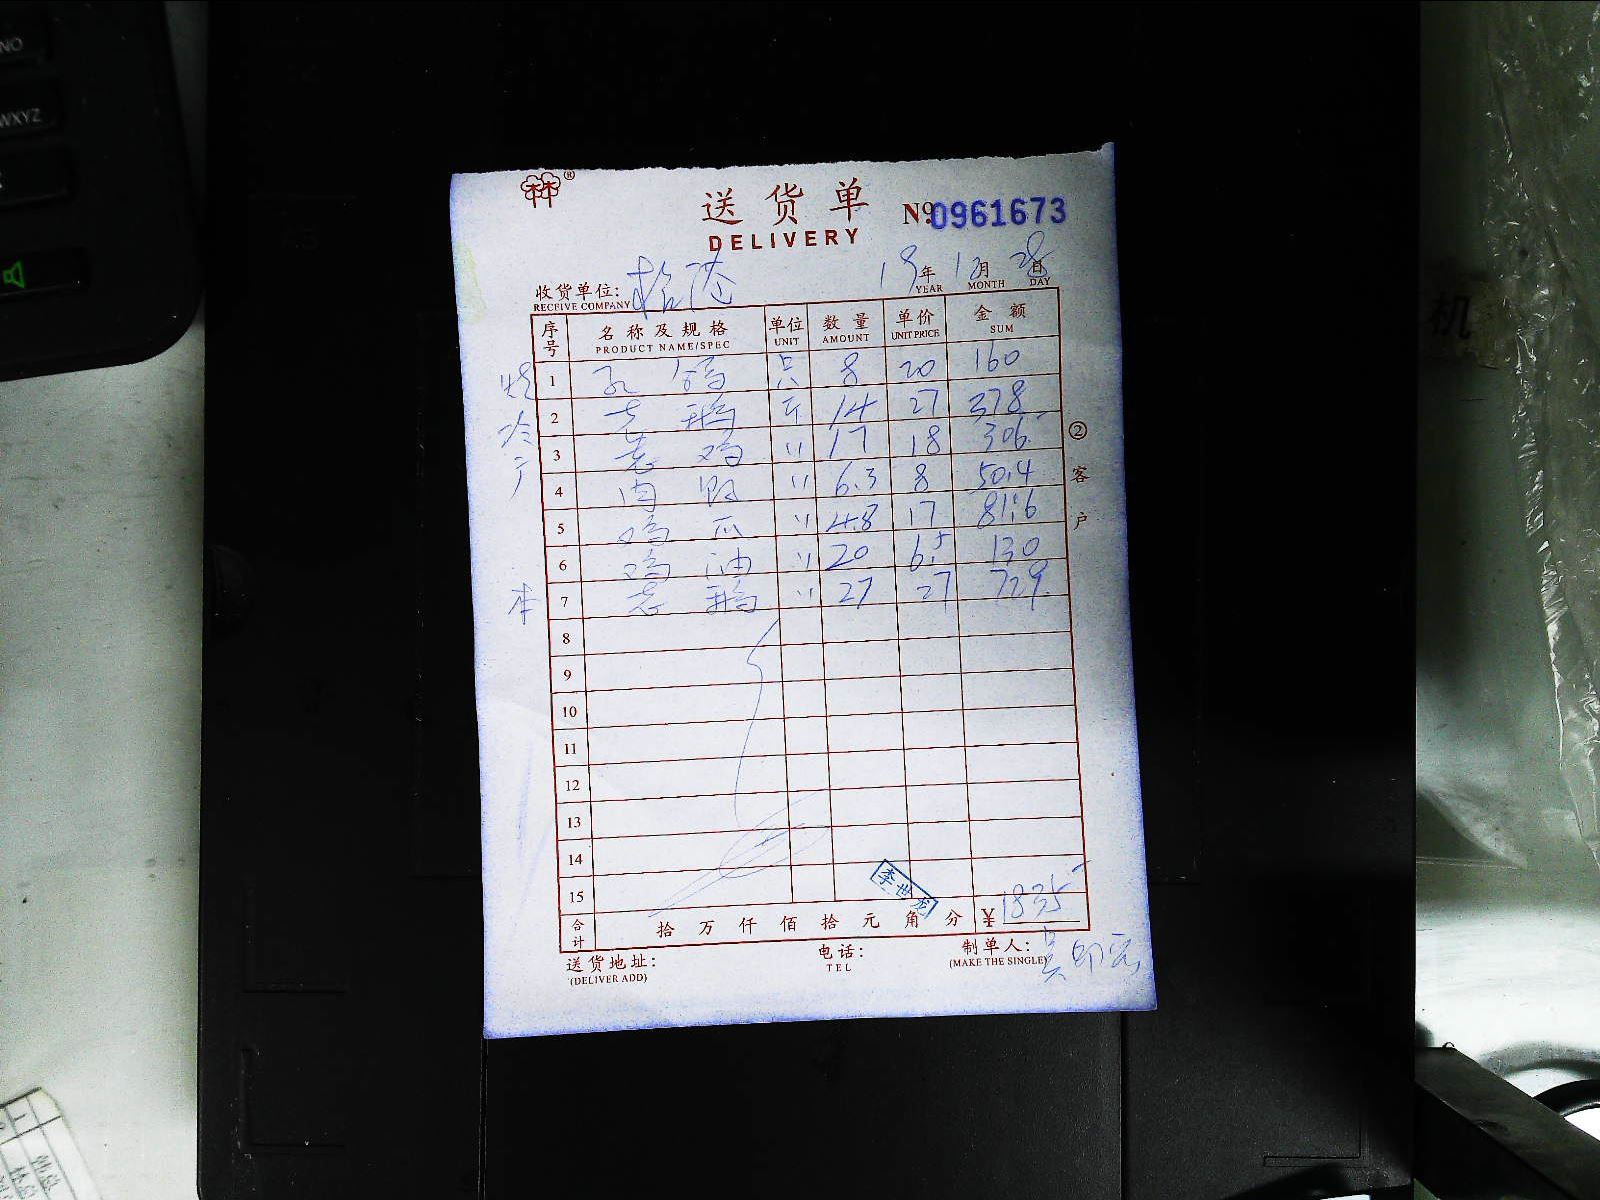 NO
WXYZ
机
®
送货单
DELIVERY
№ 0961673
收货单位:
RECEIVE COMPANY
19年 12月 28日
YEAR MONTH DAY
序号 名称及规格 单位 数量 单价 金额
PRODUCT NAME/SPEC UNIT AMOUNT UNIT PRICE SUM
1 乳鸽 只 8 20 160
2 老鹅 斤 14 27 378
3 老鸡 〃 17 18 306
4 肉 〃 6.3 8 50.4
5 鸡爪 〃 4.8 17 81.6
6 鸡油 〃 20 6.5 130
7 老鹅 〃 27 27 729
8
9
10
11
12
13
14
15
②客户
李世龙
合计 拾万仟佰拾元角分 ¥ 1835
送货地址: 电话: 制单人:
(DELIVER ADD) TEL (MAKE THE SINGLE)